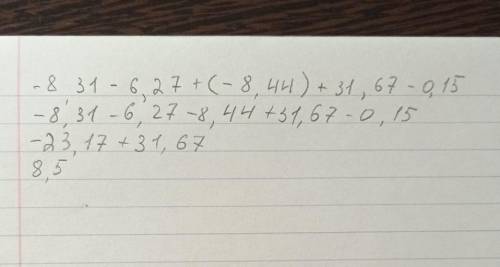 -8,31 - 6,27 + (-8,44) + 31,67 - 0,15
-8,31 - 6,27 - 8,44 + 31,67 - 0,15
-23,17 + 31,67
8,5